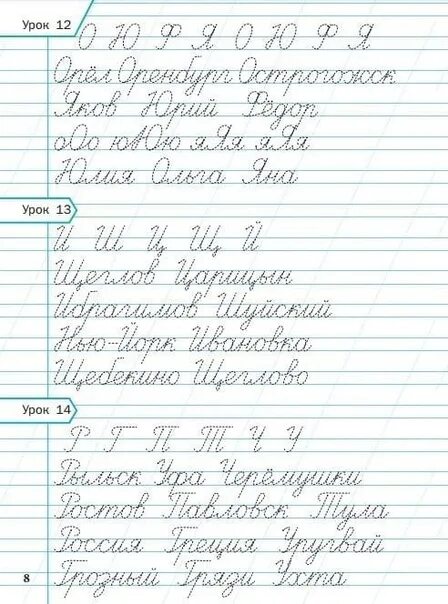 Урок 12
О Ю Ф Я О Ю Ф Я
Орёл Оренбург Острогожск
Яков Юрий Фёдор
оОо юЮю яЯя яЯя
Юлия Ольга Яна
Урок 13
И Ш Ц Щ Й
Щеглов Царицын
Ибрагимов Шуйский
Нью-Йорк Ивановка
Щебекино Щеглово
Урок 14
Р Г П Т Ч У
Рыльск Уфа Черёмушки
Ростов Павловск Тула
Россия Греция Уругвай
Грозный Грязи Ухта
8